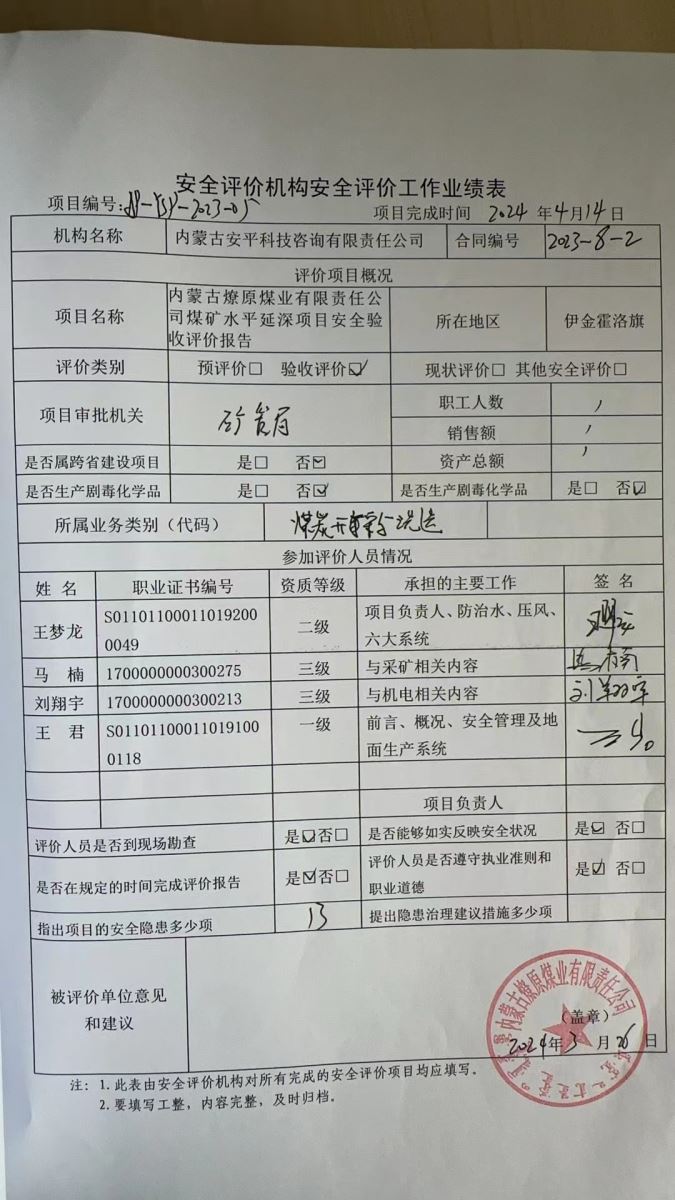 安全评价机构安全评价工作业绩表
项目编号: 项目完成时间 2024 年 4 月 14 日
机构名称 内蒙古安平科技咨询有限责任公司 合同编号 2023-8-2
评价项目概况
项目名称 内蒙古燎原煤业有限责任公 所在地区 伊金霍洛旗
司煤矿水平延深项目安全验
收评价报告
评价类别 预评价□ 验收评价☑ 现状评价□ 其他安全评价□
项目审批机关 职工人数 /
销售额 /
是否属跨省建设项目 是□ 否☑ 资产总额 /
是否生产剧毒化学品 是□ 否☑ 是否生产剧毒化学品 是□ 否☑
所属业务类别（代码） 煤炭开采 洗选
参加评价人员情况
姓 名 职业证书编号 资质等级 承担的主要工作 签 名
王梦龙 S01101100011019200 二级 项目负责人、防治水、压风、
0049 六大系统
马 楠 1700000000300275 三级 与采矿相关内容 马楠
刘翔宇 1700000000300213 三级 与机电相关内容 刘翔宇
王 君 S01101100011019100 一级 前言、概况、安全管理及地
0118 面生产系统
项目负责人
评价人员是否到现场勘查 是☑否□ 是否能够如实反映安全状况 是☑ 否□
是否在规定的时间完成评价报告 是☑否□ 评价人员是否遵守执业准则和 是☑ 否□
职业道德
指出项目的安全隐患多少项 13 提出隐患治理建议措施多少项
被评价单位意见
和建议
内蒙古燎原煤业有限责任公司
（盖章）
2024年 3 月 26 日
注: 1. 此表由安全评价机构对所有完成的安全评价项目均应填写。
2. 要填写工整，内容完整，及时归档。